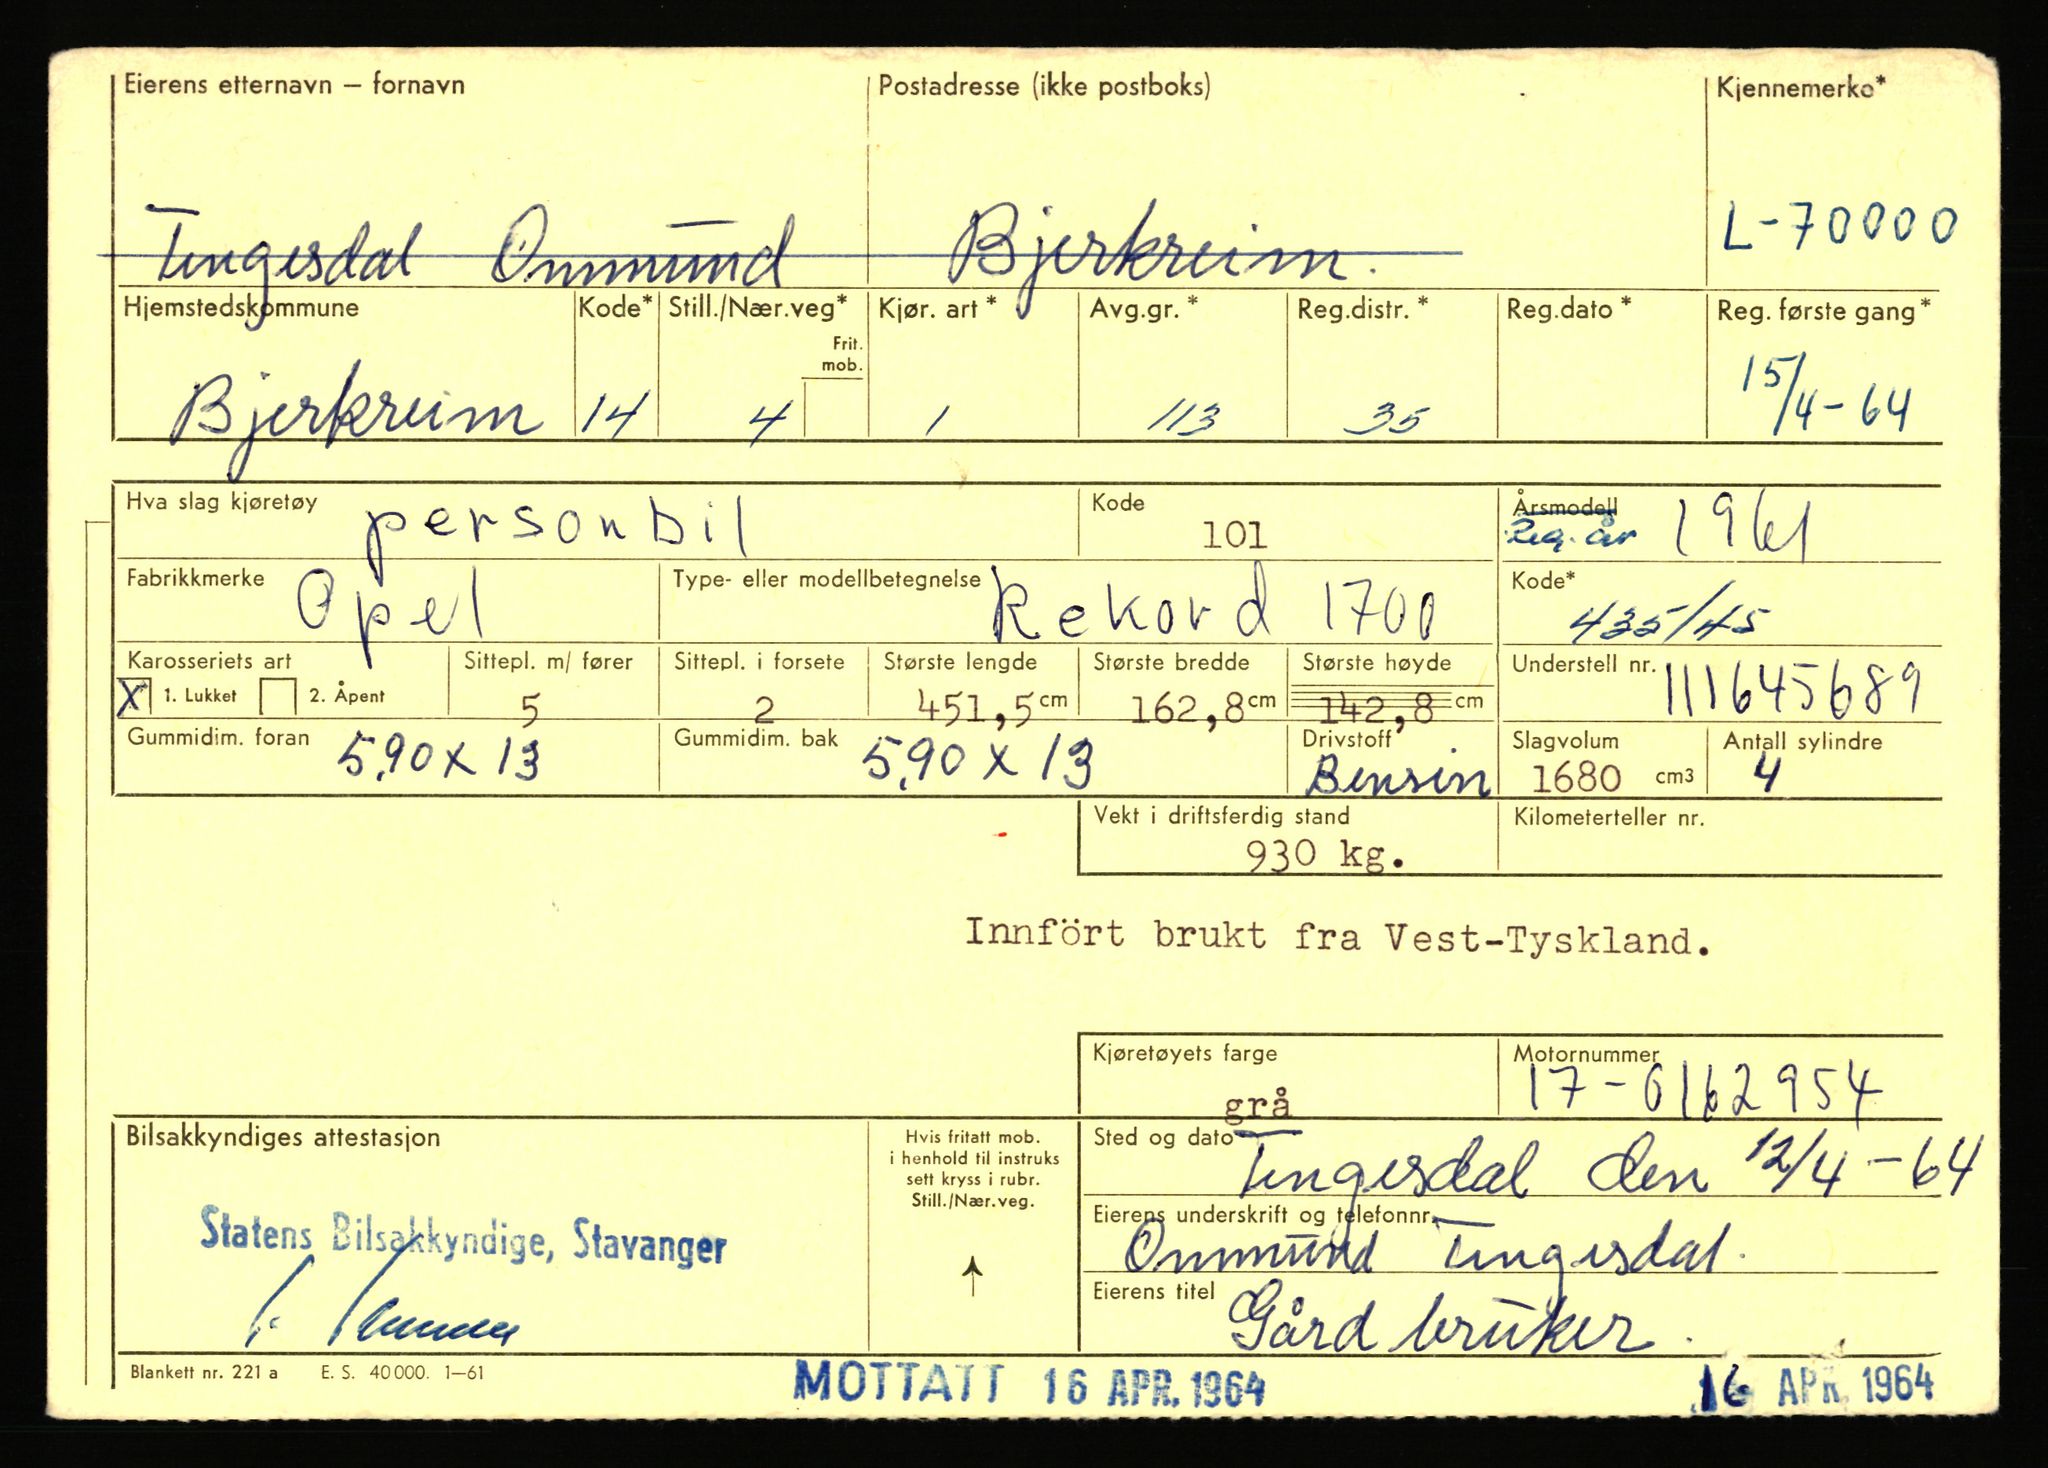 Eierens etternavn – fornavn Postadresse (ikke postboks) Kjennemerke*
Tengesdal Ommund Bjerkreim. L-70000
Hjemstedskommune Kode* Still./Nær.veg* Kjør. art* Avg.gr.* Reg.distr.* Reg.dato* Reg. første gang*
Frit.
mob.
Bjerkreim 14 4 1 113 35 15/4-64
Hva slag kjøretøy personbil Kode 101 Årsmodell 1961
Reg. år
Fabrikkmerke Opel Type- eller modellbetegnelse Rekord 1700 Kode* 435/45
Karosseriets art Sittepl. m/ fører Sittepl. i forsete Største lengde Største bredde Største høyde Understell nr. 111645689
X 1. Lukket 2. Åpent 5 2 451,5 cm 162,8 cm 142,8 cm
Gummidim. foran 5,90 x 13 Gummidim. bak 5,90 x 13 Drivstoff Bensin Slagvolum 1680 cm3 Antall sylindre 4
Vekt i driftsferdig stand Kilometerteller nr.
930 kg.
Innfört brukt fra Vest-Tyskland.
Kjøretøyets farge Motornummer
grå 17-0162954
Bilsakkyndiges attestasjon Hvis fritatt mob. Sted og dato Tengesdal den 12/4-64
i henhold til instruks
sett kryss i rubr.
Still./Nær.veg.
Statens Bilsakkyndige, Stavanger Eierens underskrift og telefonnr.
Ommund Tengesdal.
Eierens titel Gård bruker.
Blankett nr. 221 a E. S. 40 000. 1–61 MOTTATT 16 APR. 1964 16 APR. 1964